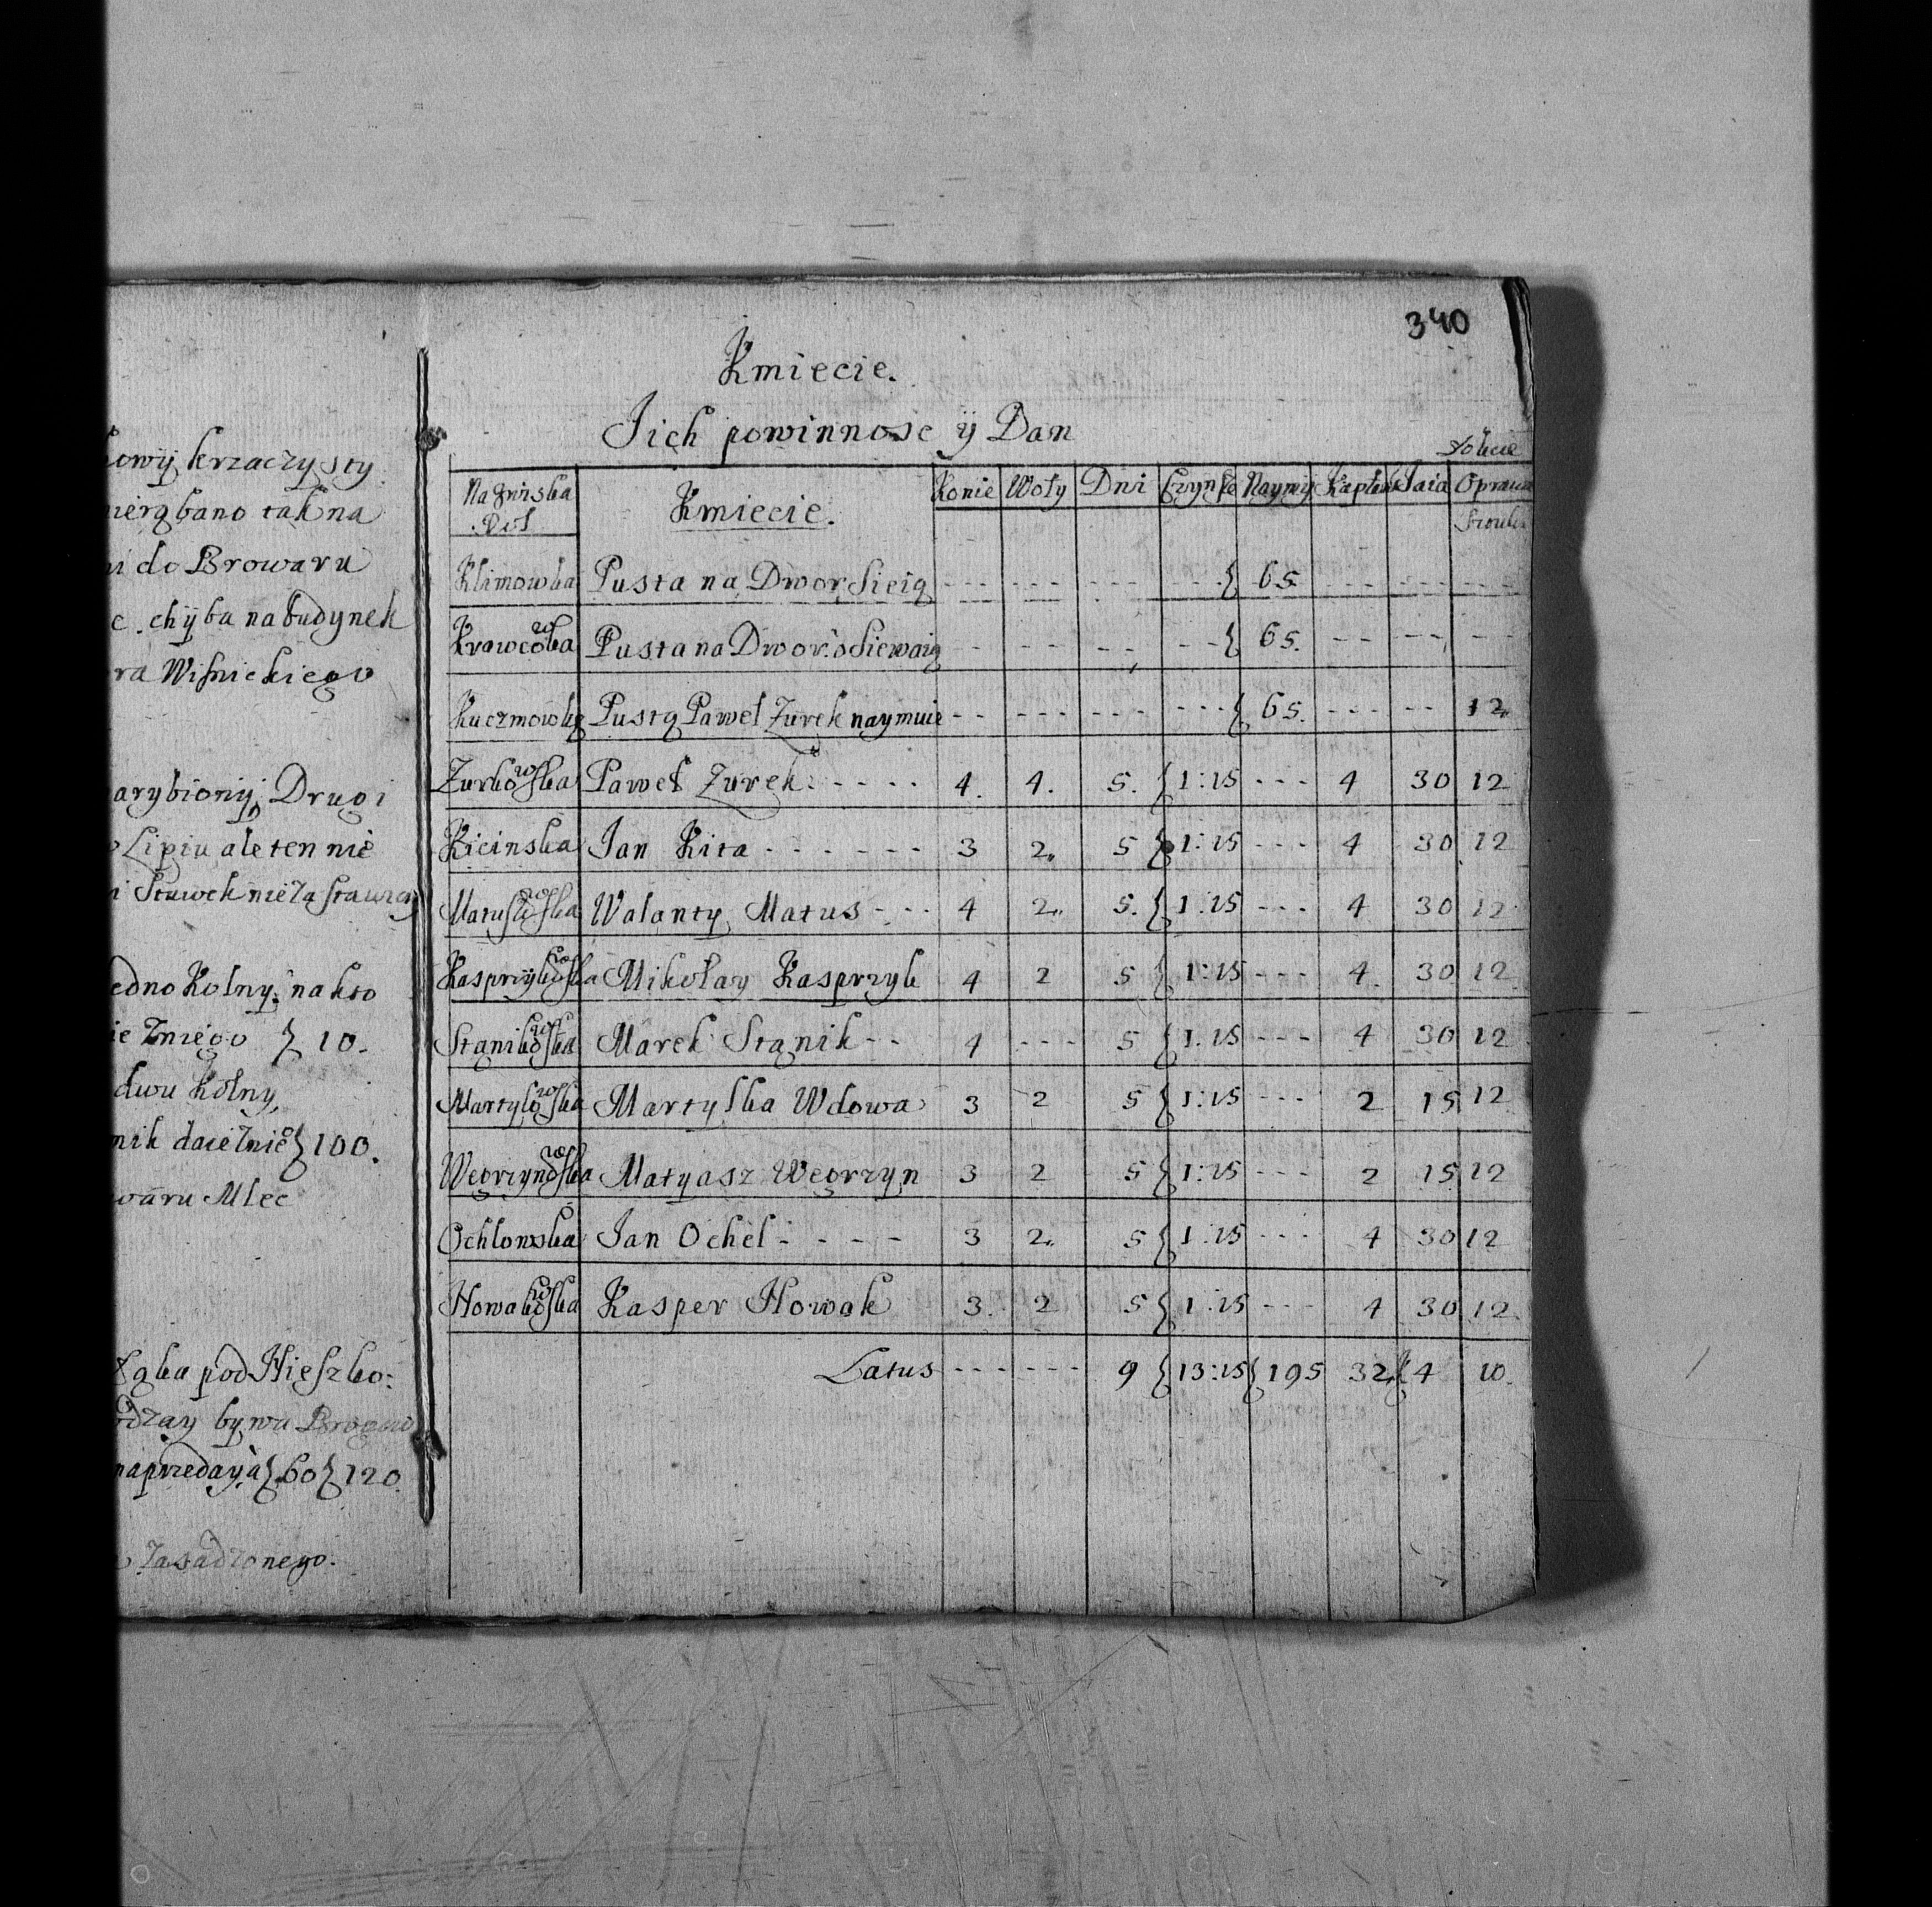 owÿ krzaczysty
nierąbano tak na
ni do Browaru
c. chÿba na budynek
ra Wiśnickiego
arybionÿ Drugi
Lipiu ale ten nie
i Stawek nie
edno Kolnÿ na kto
ie Zniego } 10.
dwu kolny
nik daie Znie } 100.
waru Mlec
pod Nieszko:
odzay bywa
naprzedaÿà } 60 } 120.
Zasadzonego.
340
Kmiecie.
Jich powinnosc ÿ Dan
Nazwiska Rol Kmiecie. Konie Woły Dni Czynsz Naymÿ Kapłon Jaia Oprawa
Klimowka Pusta na Dwor Sieią - - - - - - - - - - - - { 65. - - - - - - - - -
Krawcowka Pusta na Dwor. osiewaią - - - - - - - - - { 65. - - - - - - -
Kuczmowką Pustą Paweł Zurek naymuie - - - - - - - - - - - { 65. - - - - - 12
Zurkowska Paweł Zurek - - - - 4. 4. 5. { 1:15 - - - 4 30 12
Kicinska Jan Kita - - - - - - 3 2. 5 } 1:15 - - - 4 30 12
Matuszowska Walanty Matus - - - 4 2. 5. { 1:15 - - - 4 30 12
Kasprzykowska Mikołay Kasprzyk 4 2 5 { 1:15 - - - 4. 30 12
Stanikowska Marek Stąnik - - 4 - - - 5 { 1:15 - - - 4 30 12
Martykowska Martyska Wdowa 3 2 5 { 1:15 - - - 2 15 12
Węgrzynowska Matyasz Węgrzyn 3 2 5 { 1:15 - - - 2 15 12
Ochlowska Jan Ochel - - - - 3 2. 5 { 1:15 - - - 4 30 12
Nowakowska Kasper Nowak 3. 2 5 { 1:15 - - - 4 30 12.
Latus - - - - - - 9 { 13:15 } 195 32 { 4 10.